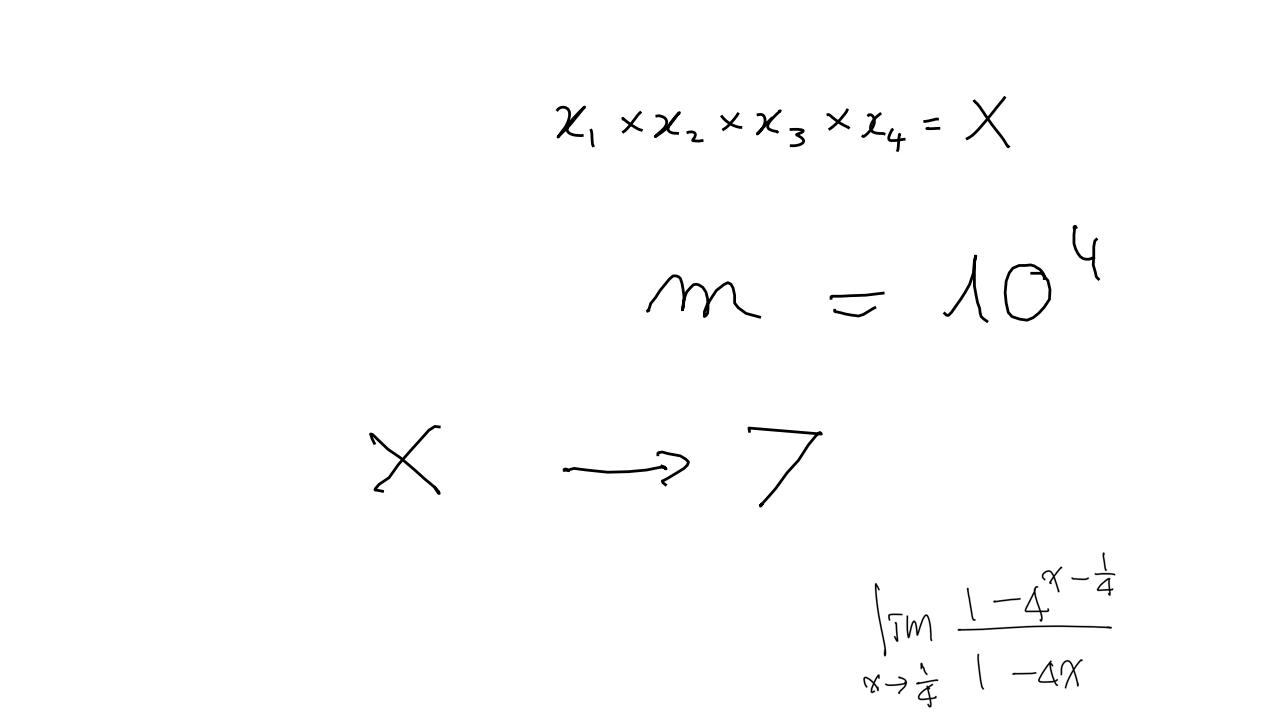 x₁ × x₂ × x₃ × x₄ = X
m = 10⁴
X → 7
lim_{x→\frac{1}{4}} \frac{1-4^{x-\frac{1}{4}}}{1-4x}